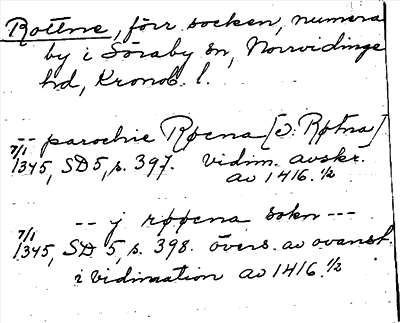 Rottne, förr socken, numera
by i Söraby sn, Norrvidinge
hd, Kronob. l.
-- parochie Røcna [ɔ: Røtna]
7/1 1345, SD 5, s. 397. vidim. avskr.
av 1416. 1/2
-- j røøcna sokn ---
7/1 1345, SD 5, s. 398. övers. av ovanst.
i vidimation av 1416. 1/2